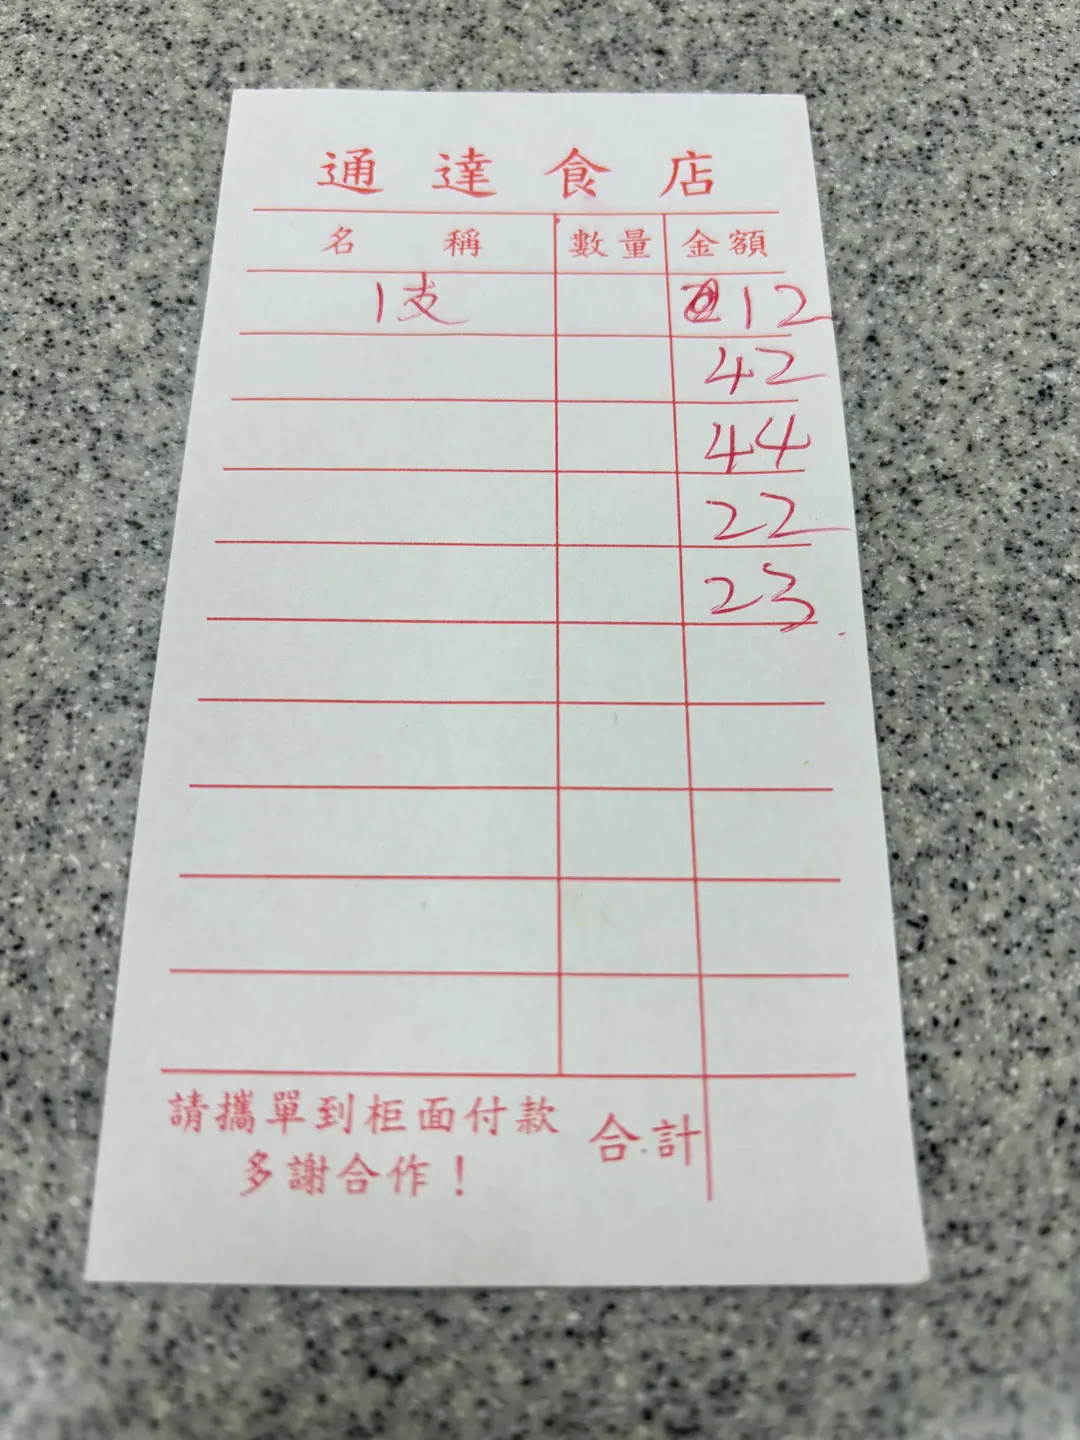 通達食店
名稱 數量 金額
1支 12
42
44
22
23
請攜單到柜面付款 合計
多謝合作！